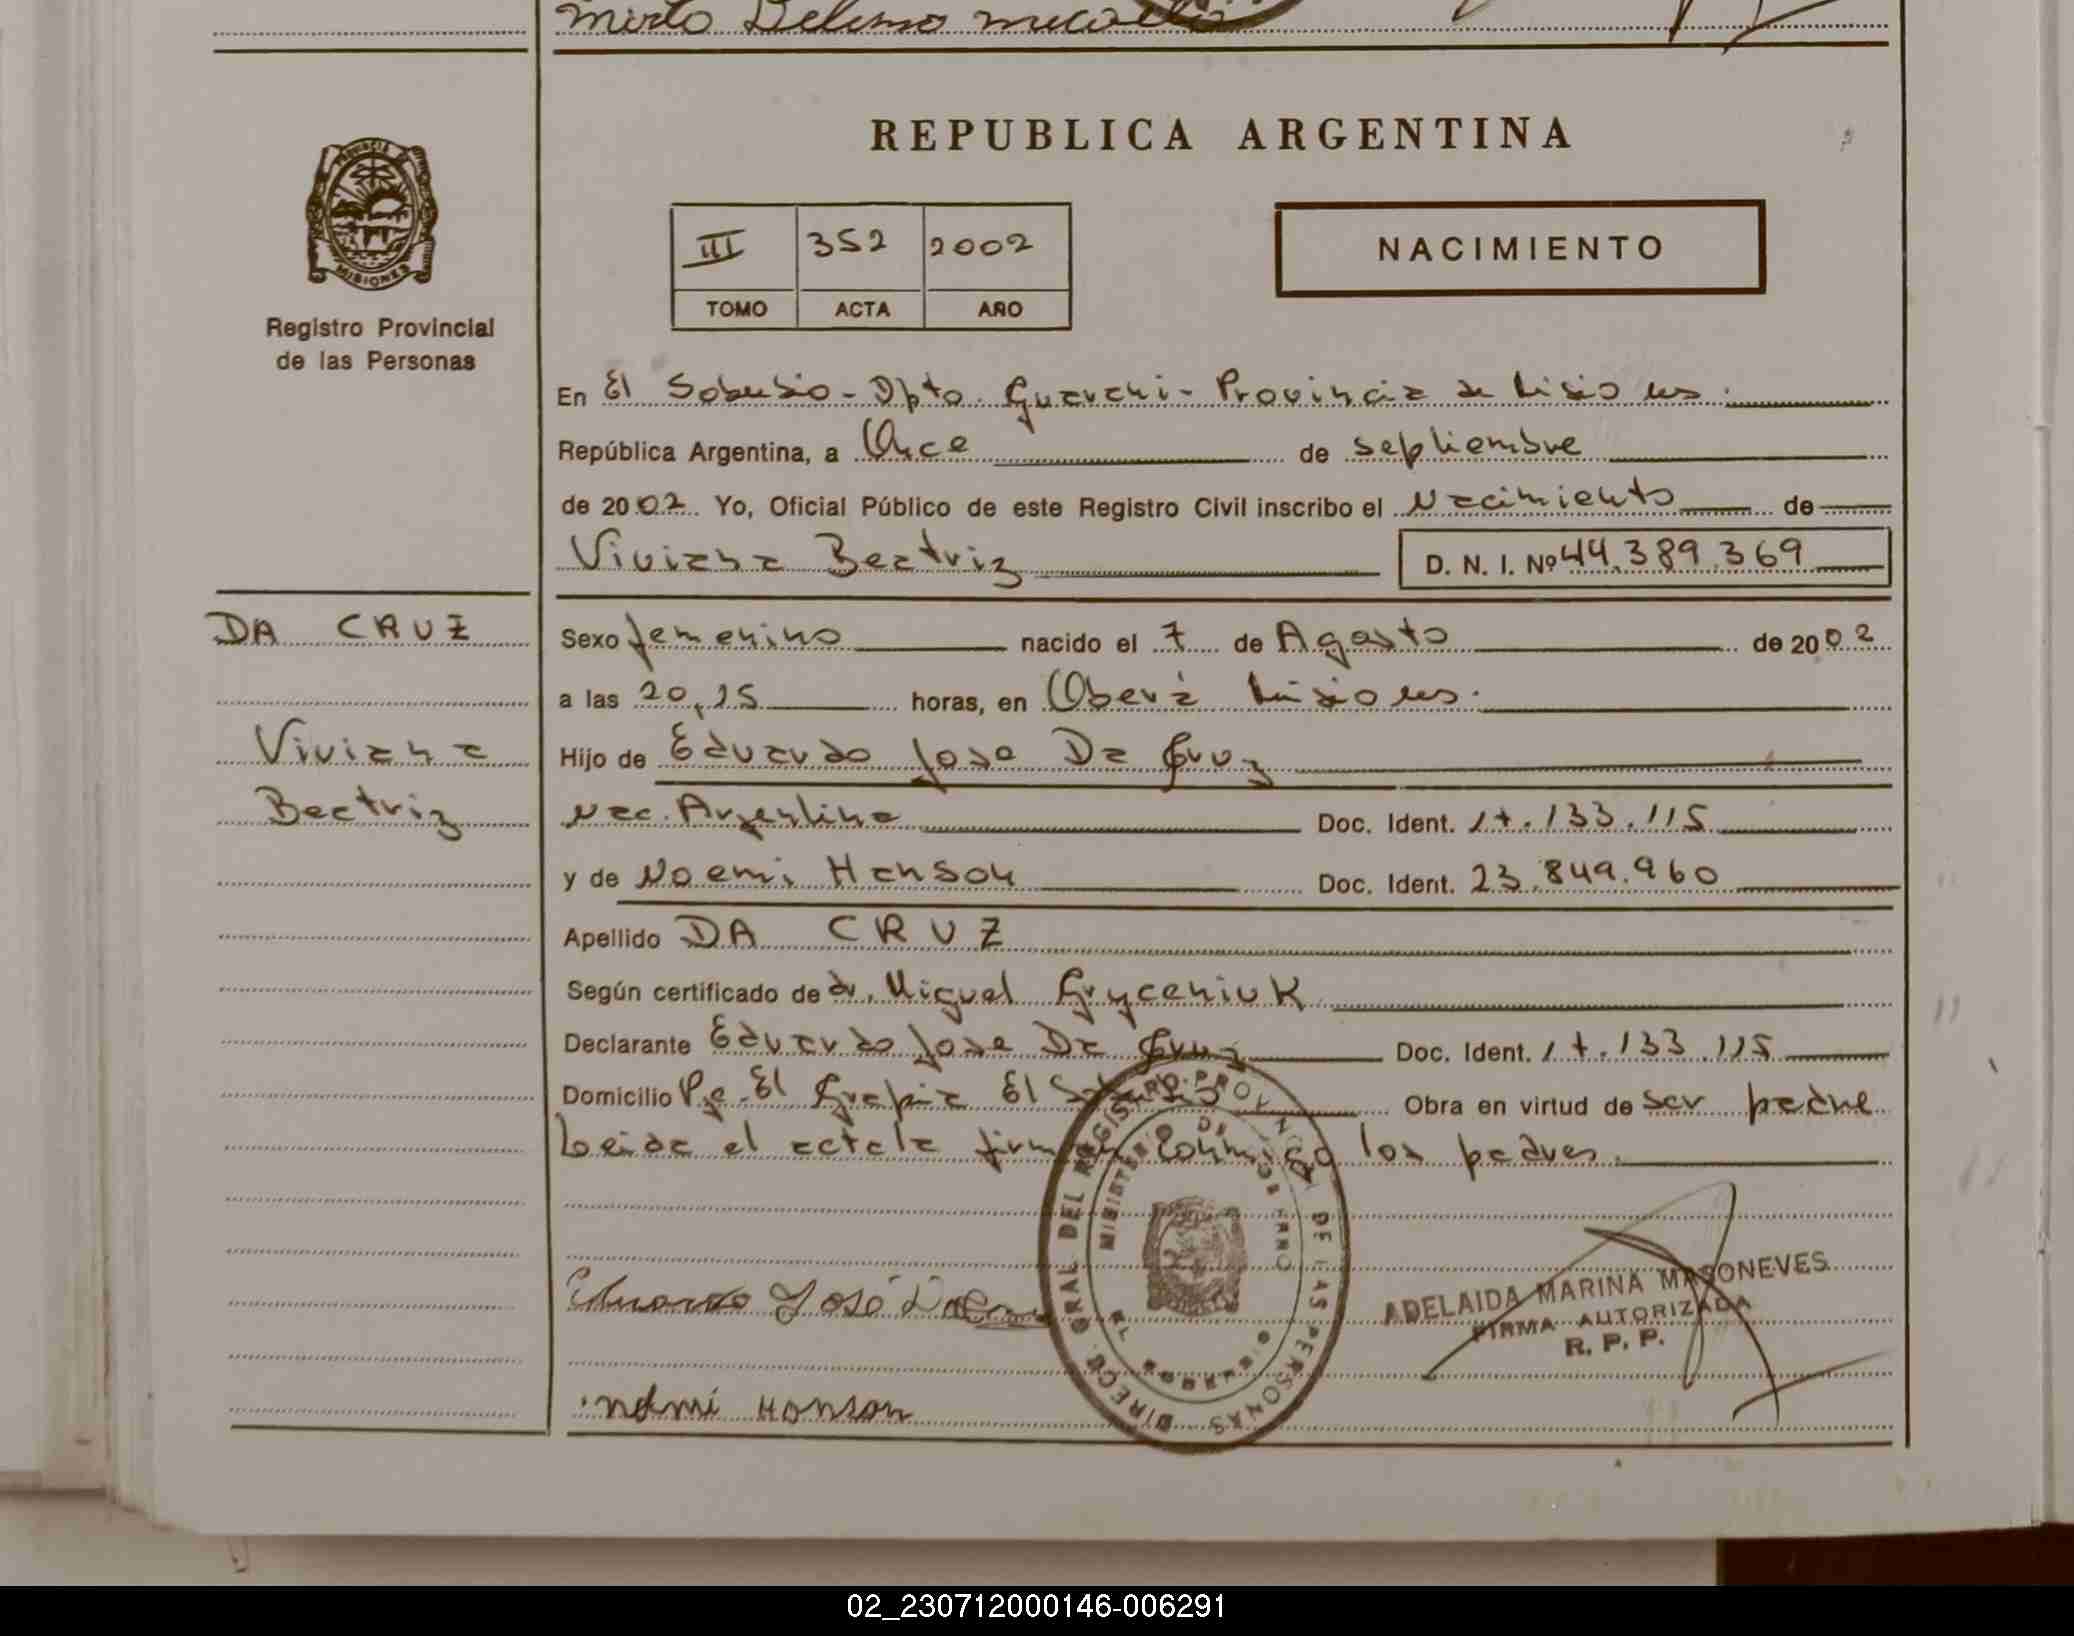 REPUBLICA ARGENTINA
PROVINCIA D
MISIONES
Registro Provincial
de las Personas
III 352 2002
TOMO ACTA AÑO
NACIMIENTO
En El Soberbio - Dpto. Guarani - Provincia de Misiones.
República Argentina, a Once de septiembre
de 2002 Yo, Oficial Público de este Registro Civil inscribo el Nacimiento de
Viviana Beatriz D. N. I. Nº 44.389.369
DA CRUZ
Viviana
Beatriz
Sexo femenino nacido el 7 de Agosto de 2002
a las 20,15 horas, en Oberá Misiones.
Hijo de Eduardo Jose Da Cruz
Nac. Argentina Doc. Ident. 17.133.115
y de Noemi Hanson Doc. Ident. 23.849.960
Apellido DA CRUZ
Según certificado de dr. Miguel Gryceniuk
Declarante Eduardo Jose Da Cruz Doc. Ident. 17.133.115
Domicilio Pje. El Grapia El Soberbio Obra en virtud de ser padre
Leida el acta la firman conmigo los padres.
Eduardo José Da Cruz
DIRECC. GRAL DEL REGISTRO PROVINCIAL DE LAS PERSONAS
MINISTERIO DE GOBIERNO
ADELAIDA MARINA MASONEVES
FIRMA AUTORIZADA
R. P. P.
noemi Honson
02_230712000146-006291